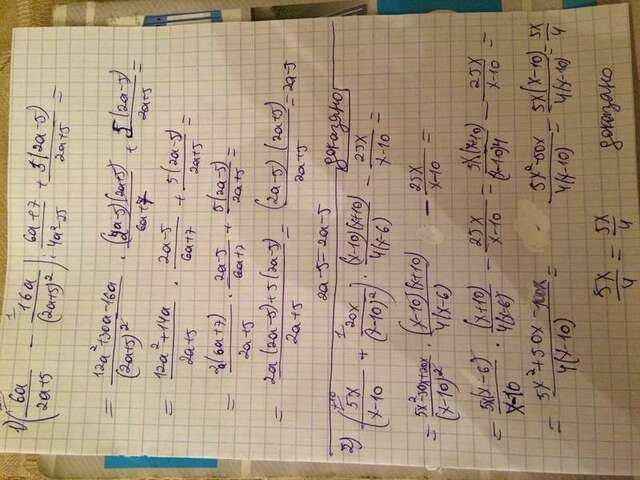 1) (6a/(2a+5) - 16a/(2a+5)²) : (6a+7)/(4a²-25) + 5(2a-5)/(2a+5) =
= (12a²+30a-16a)/(2a+5)² · (2a-5)(2a+5)/(6a+7) + 5(2a-5)/(2a+5) =
= (12a²+14a)/(2a+5) · (2a-5)/(6a+7) + 5(2a-5)/(2a+5) =
= 2(6a+7)/(2a+5) · (2a-5)/(6a+7) + 5(2a-5)/(2a+5) =
= (2a(2a-5)+5(2a-5))/(2a+5) = (2a-5)(2a+5)/(2a+5) = 2a-5
2a-5=2a-5 доказано
2) (5x/(x-10) + 20x/(x-10)²) · (x-10)(x+10)/4(x-6) - 25x/(x-10) =
= (5x²-50x+20x)/(x-10)² · (x-10)(x+10)/4(x-6) - 25x/(x-10) =
= 5x(x-6)/(x-10) · (x+10)/4(x-6) - 25x/(x-10) = 5x(x+10)/(x-10)4 - 25x/(x-10) =
= (5x²+50x-100x)/4(x-10) = (5x²-50x)/4(x-10) = 5x(x-10)/4(x-10) = 5x/4
5x/4 = 5x/4 доказано